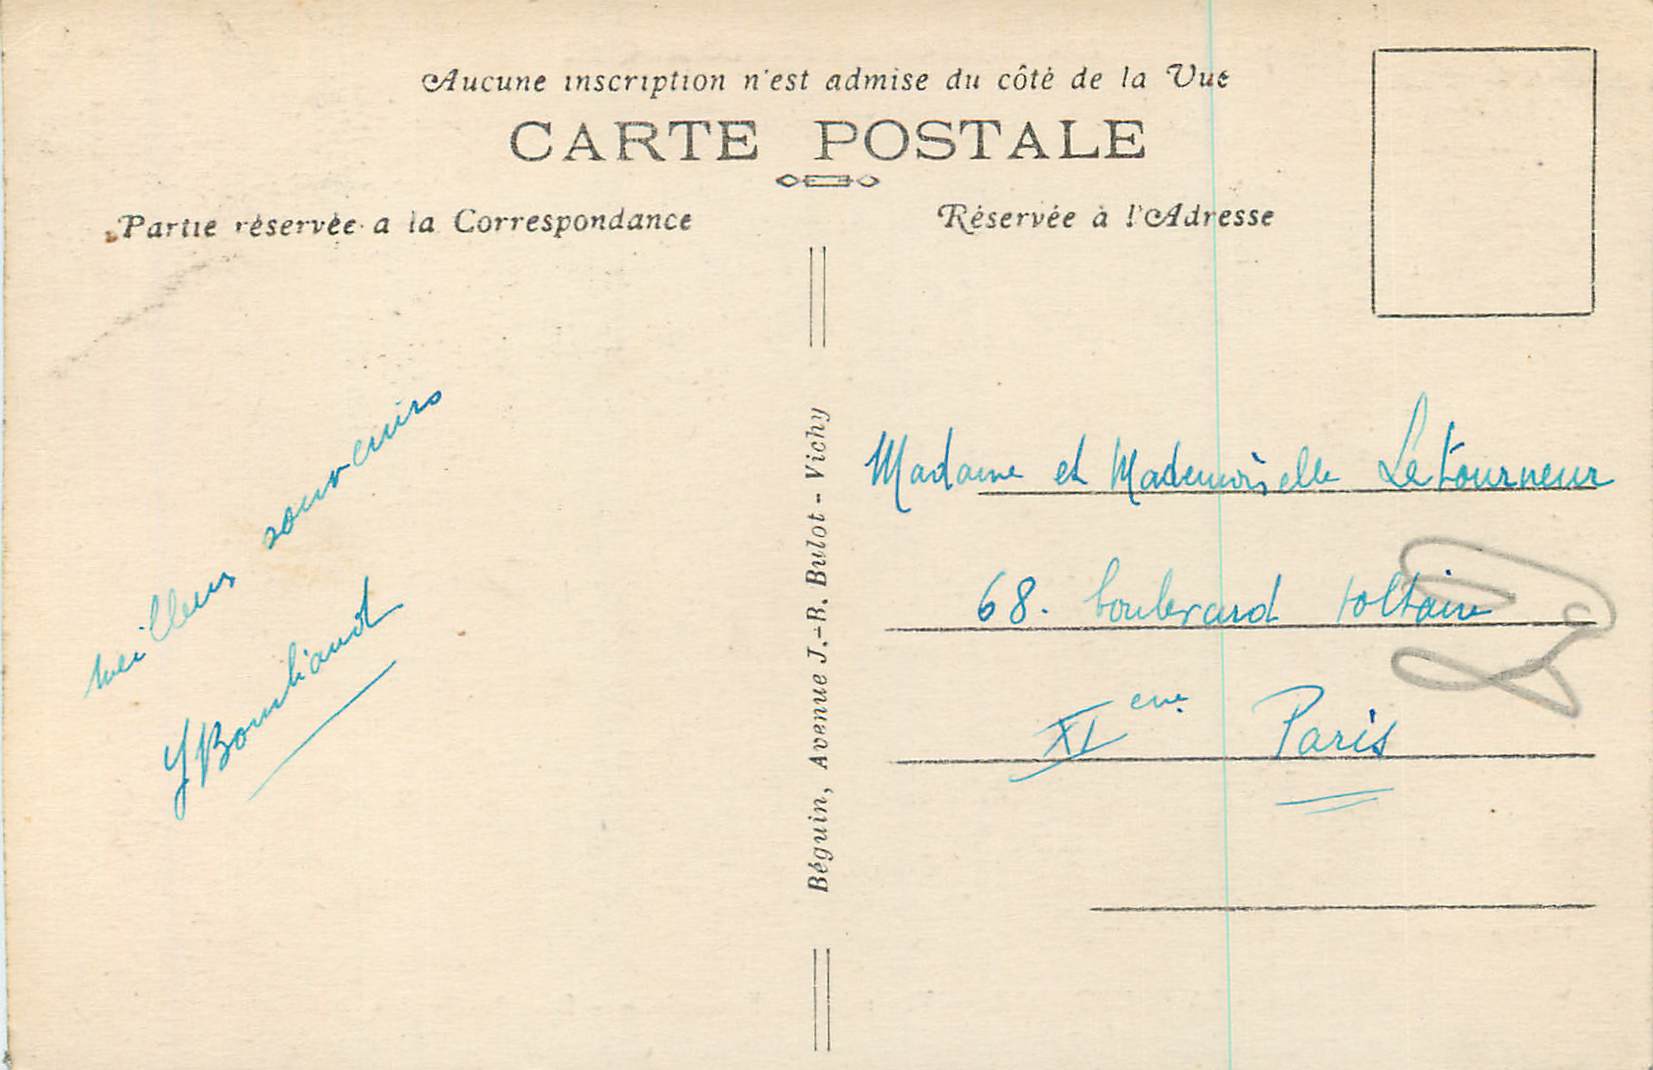 Aucune inscription n'est admise du côté de la Vue
CARTE POSTALE
Partie réservée a la Correspondance
Réservée à l'Adresse
meilleurs souvenirs
Béguin, Avenue J.-B. Bulot - Vichy
Madame et Mademoiselle Letourneur
68. boulevard voltaire
XI eme Paris